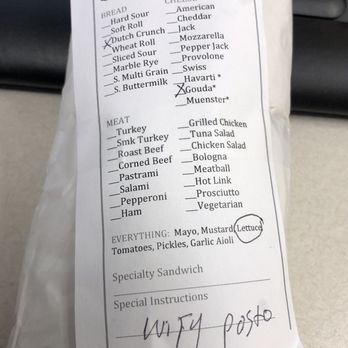 BREAD
__Hard Sour
__Soft Roll
X Dutch Crunch
__Wheat Roll
__Sliced Sour
__Marble Rye
__S. Multi Grain
__S. Buttermilk
__American
__Cheddar
__Jack
__Mozzarella
__Pepper Jack
__Provolone
__Swiss
__Havarti *
X Gouda*
__Muenster*
MEAT
__Turkey
__Smk Turkey
__Roast Beef
__Corned Beef
__Pastrami
__Salami
__Pepperoni
__Ham
__Grilled Chicken
__Tuna Salad
__Chicken Salad
__Bologna
__Meatball
__Hot Link
__Prosciutto
__Vegetarian
EVERYTHING: Mayo, Mustard, Lettuce
Tomatoes, Pickles, Garlic Aioli
Specialty Sandwich
Special Instructions